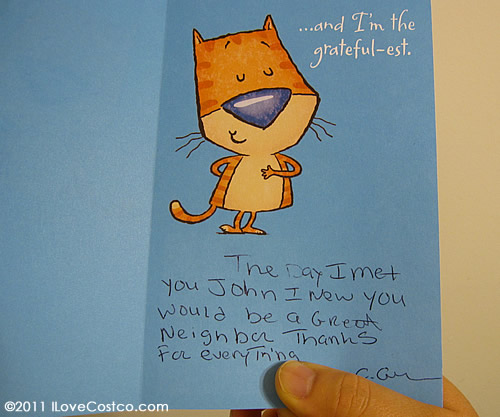 ...and I'm the
grateful-est.
The Day I met
you John I New you
would be a Great
Neighbor Thanks
For everything
©2011 ILoveCostco.com